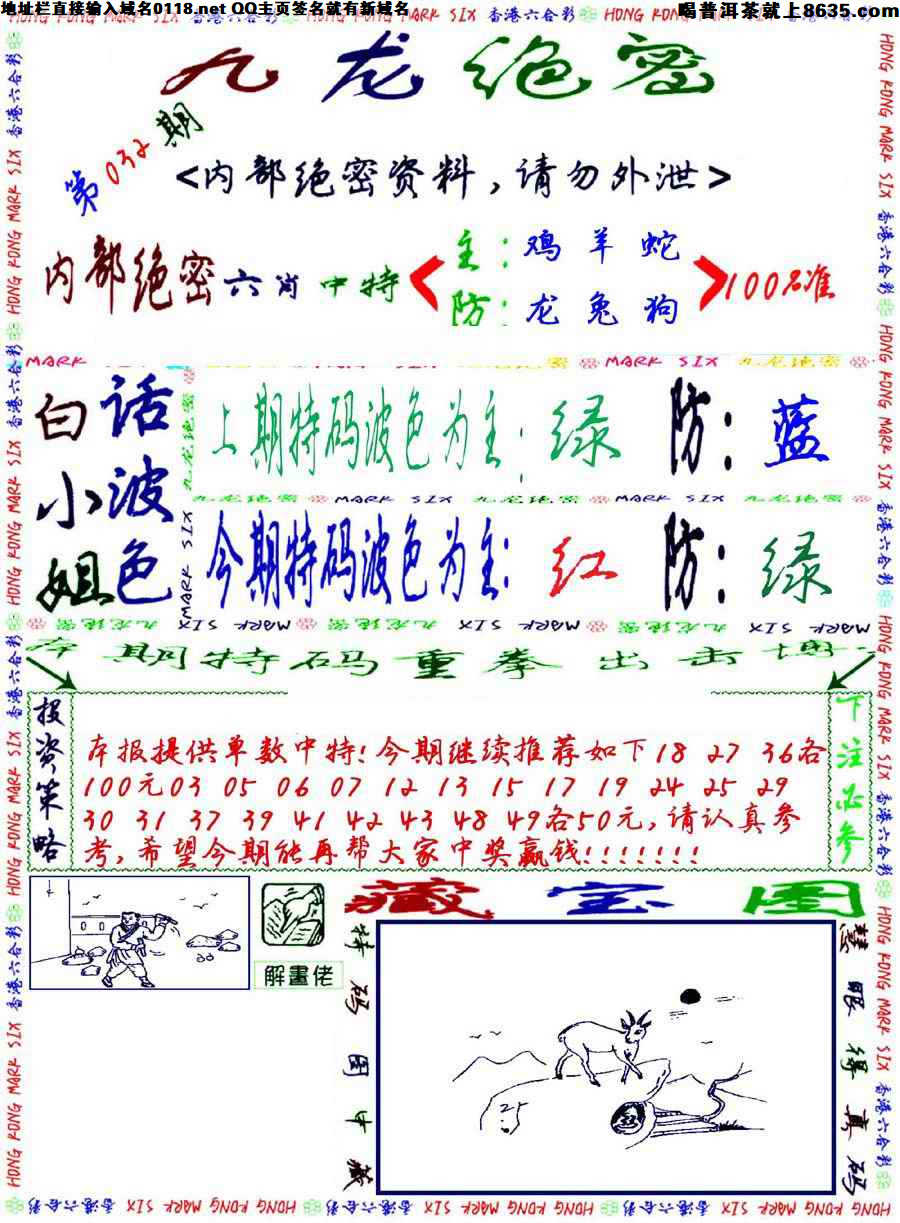 地址栏直接输入域名0118.net QQ主页签名就有新域名
喝普洱茶就上8635.com
HONG KONG MARK SIX 香港六合彩
九龙绝密
第032期
<内部绝密资料,请勿外泄>
内部绝密六肖中特
主:鸡羊蛇
防:龙兔狗
100%准
MARK SIX 九龙绝密
白小姐
话波色
上期特码波色为主:绿 防:蓝
九龙绝密 MARK SIX 九龙绝密 MARK SIX 九龙绝密
今期特码波色为主:红 防:绿
本期特码重拳出击
投资策略
本报提供单数中特!今期继续推荐如下18 27 36各
100元03 05 06 07 12 13 15 17 19 24 25 29
30 31 37 39 41 42 43 48 49各50元,请认真参
考,希望今期能再帮大家中奖赢钱!!!!!!!
下注必参
解畫佬
藏宝图
特码图中藏
慧眼得真码
25